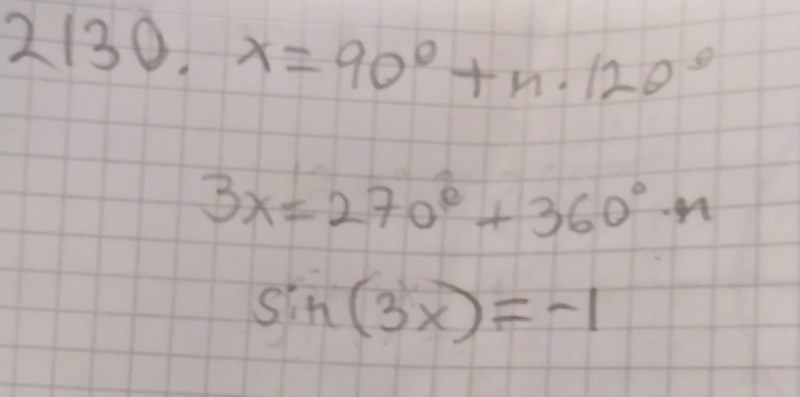 2130. x=90°+n·120°
3x=270°+360°·n
sin(3x)=-1